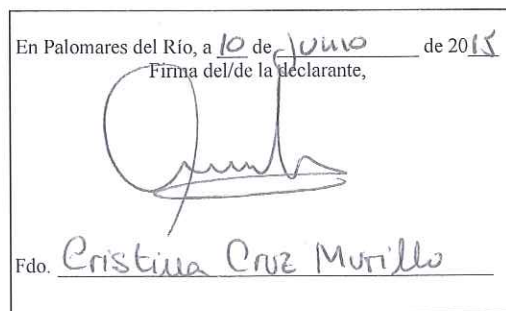 En Palomares del Río, a 10 de junio de 2015
Firma del/de la declarante,
Fdo. Cristina Cruz Murillo